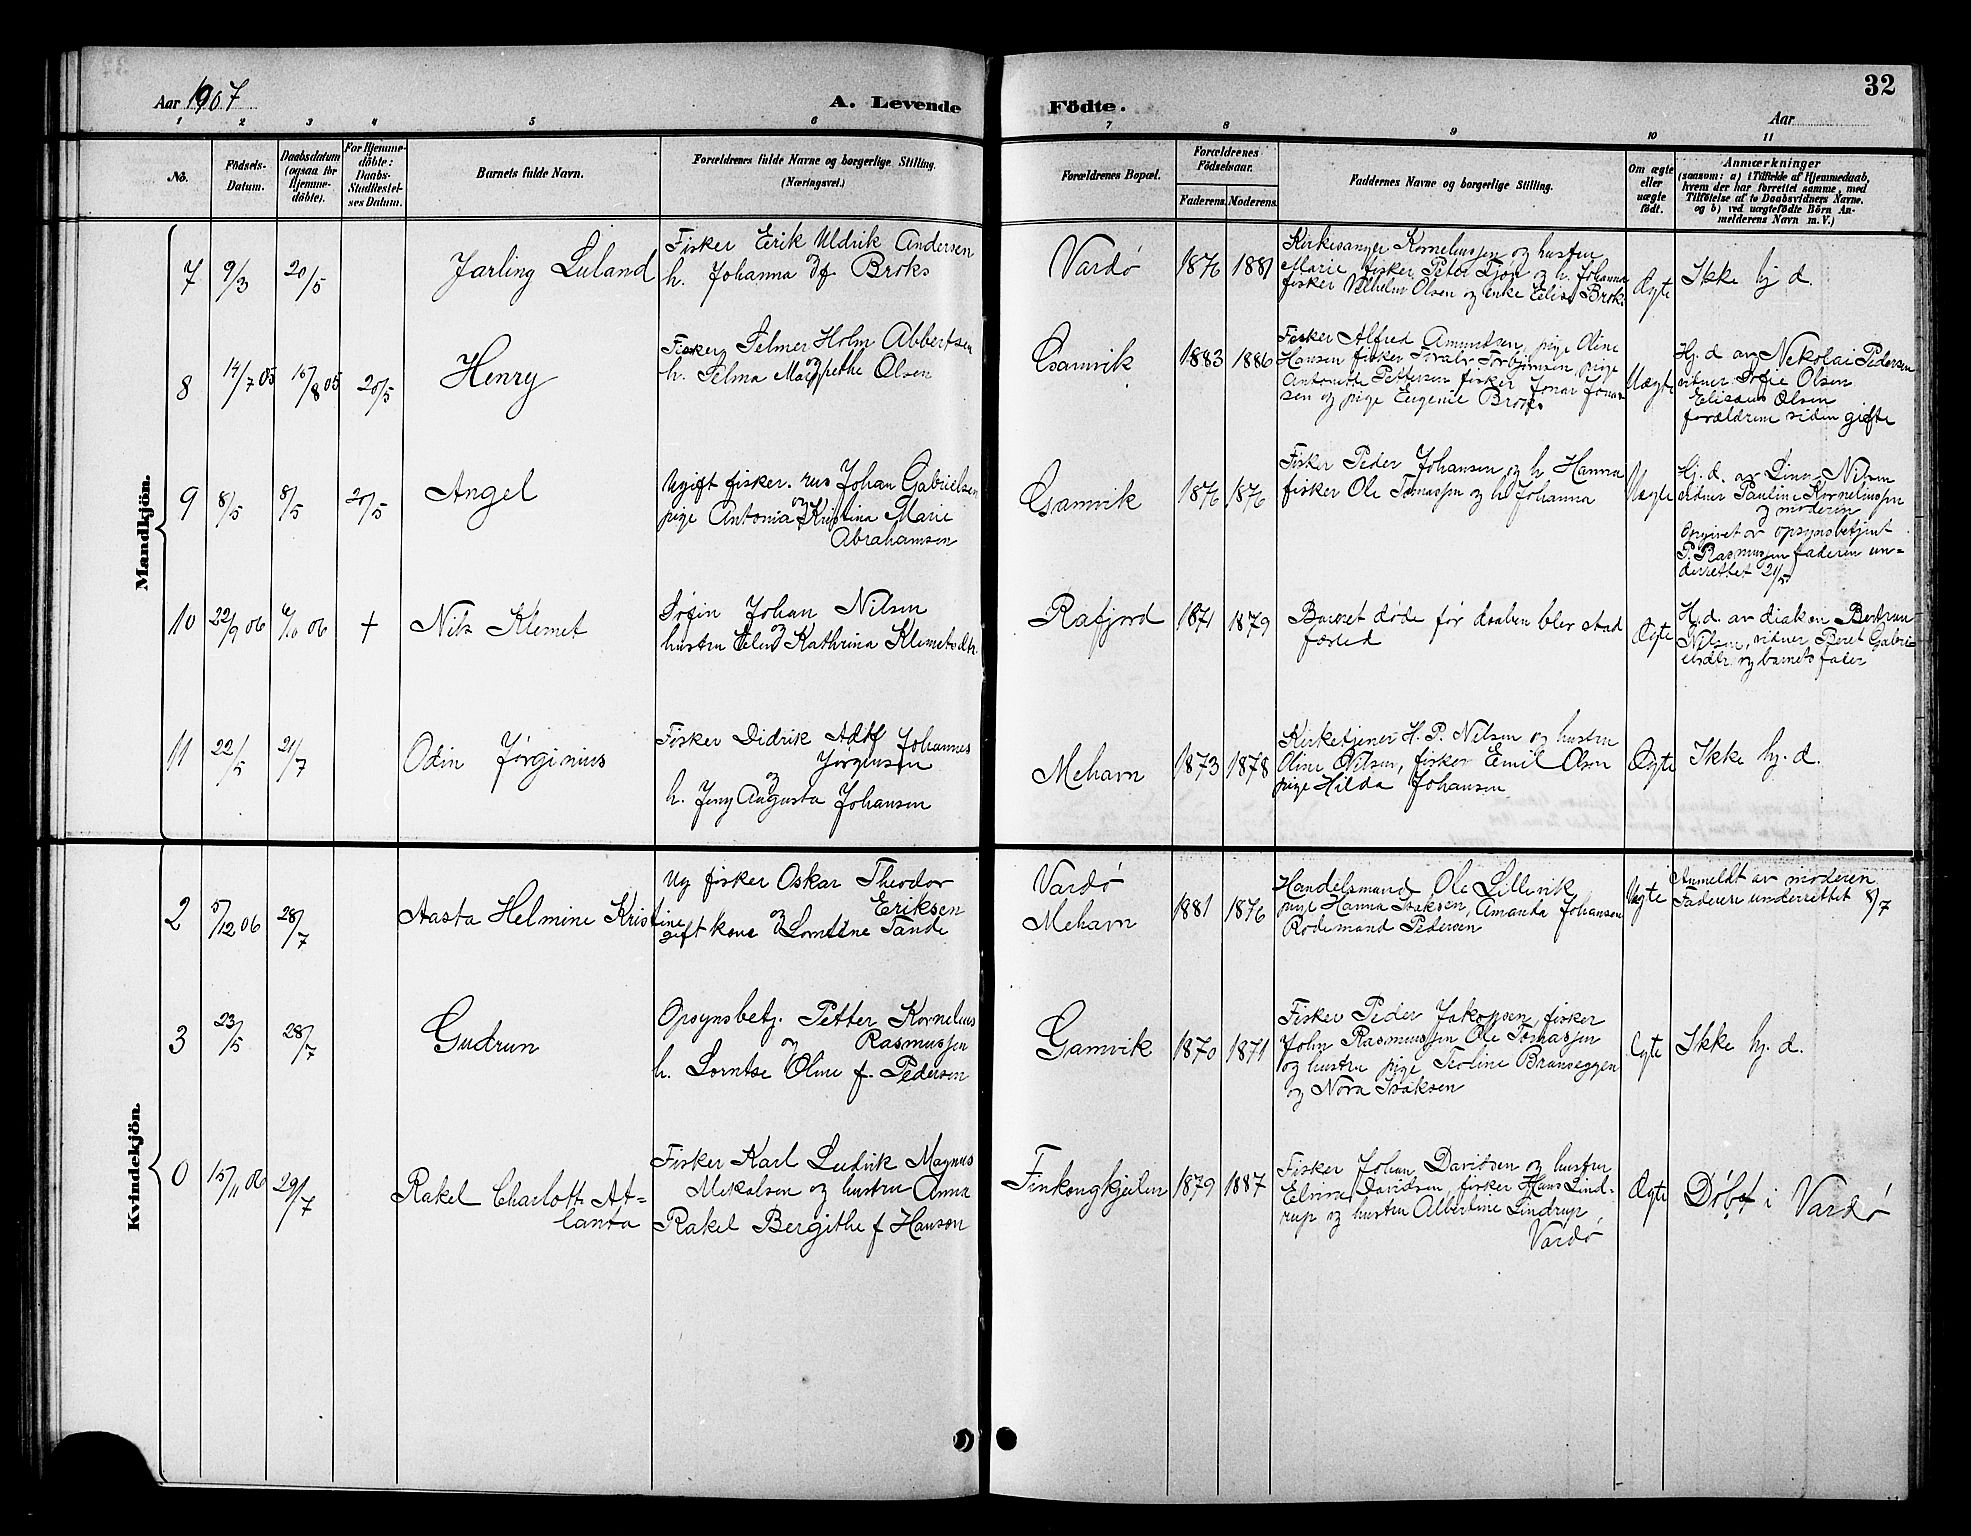 Aar 1907
A. Levende
Födte.
32
Aar
1 2 3 4 5 6 7 8 9 10 11
No.
Födsels-
Datum.
Daabsdatum
(ogsaa for
Hjemme-
döbte).
For Hjemme-
döbte:
Daabs-
Stadfæstel-
ses Datum.
Barnets fulde Navn.
Forældrenes fulde Navne og borgerlige Stilling.
(Næringsvei.)
Forældrenes Bopæl.
Forældrenes
Födselsaar.
Faderens. Moderens.
Faddernes Navne og borgerlige Stilling.
Om ægte
eller
uægte
födt.
Anmærkninger
(saasom: a) i Tilfælde af Hjemmedaab,
hvem der har forrettet samme, med
Tilföielse af to Daabsvidners Navne.
og b) ved uægtefödte Börn An-
melderens Navn m. V.)
Mandkjön.
7 9/3 20/5
Jarling Luland
Fisker Erik Uldrik Andersen
og
h. Johanna f Broks
Vardø
1876 1881
Kirkesanger Korneliussen og hustru
Marie fisker Peter og h. Johanna
fisker Vilhelm Olsen og enke Elise Broks
Ægte
Ikke hj d.
8 14/7 05 15/8 05 20/5
Henry
Fisker Selmer Holm Abbertsen
og
h. Selma Magrethe Olsen
Gamvik
1883 1886
Fisker Alfred Amundsen, pige Oline
Hansen fisker Torbjørnsen, pige
Antonette Pettersen fisker Jonar Jonas
sen og pige Eugenie Broks
Uægte
Hj. d av Nekolai Pedersen
vitner Sofie Olsen
Elisæus Olsen
forældrene siden gifte
9 8/5 8/5 20/5
Angel
Ugift fisker. rus Johan Gabrielsen
og
pige Antonia Kristina Marie
Abrahamsen
Gamvik
1876 1876
Fisker Peder Johansen og h Hanna
fisker Ole Tomassen og h. Johanna
Uægte
Hj. d. av Lina Nilsen
vidner Pauline Korneliussen
og moderen
opgivet av opsynsbetjent
P. Rasmussen faderen un-
derrettet 21/5
10 22/9 06 6/10 06 +
Nils Klemet
Søfin Johan Nilsen
og
hustru Elen Kathrina Klemetsdtr.
Rafjord
1871 1879
Barnet døde før daaben blev stad
fæsted
Ægte
H.d. av diakon Bertran
Nilsen, vidner Beret Gabrie
elsdtr. og barnets fader
11 22/5 21/7
Odin Jørginius
Fisker Didrik Adolf Johannes
Jørgensen
og
h. Jeny Augusta Johansen
Mehavn
1873 1878
Kirketjener H. P. Nilsen og hustru
Oline Nilsen, fisker Emil Olsen
pige Hilda Johansen
Ægte
Ikke hj. d.
Kvindekjön.
2 5/12 06 28/7
Aasta Helmine Kristine
Ug fisker Oskar Theodor
Eriksen
gift kone og Lorntine Sande
Vardø
Mehavn
1881 1876
Handelsmand Ole Lillevik
pige Hanna Isaksen, Amanda Johansen
Rodemand Pedersen
Uægte
Anmeldt av moderen
Faderen underrettet 8/7
3 23/5 28/7
Gudrun
Opsynsbetj. Petter Kornelius
og Rasmussen
h. Lorntse Oline f. Pedersen
Gamvik
1870 1871
Fisker Peder Jakopsen, fisker
John Rasmussen Ole Tomassen
og hustru pige Teoline Branseggen
og Nora Isaksen
Ægte
Ikke hj. d.
0 15/11 06 29/7
Rakel Charlotte At-
lanta
Fisker Karl Ludvik Magnus
Mikalsen og hustru Anna
Rakel Bergithe f Hanson
Finkongkjeilen
1879 1887
Fisker Johan Davidsen og hustru
Elvira Davidsen, fisker Hans Lind-
rup og hustru Albertine Lindrup,
Vardø
Ægte
Døbt i Vardø